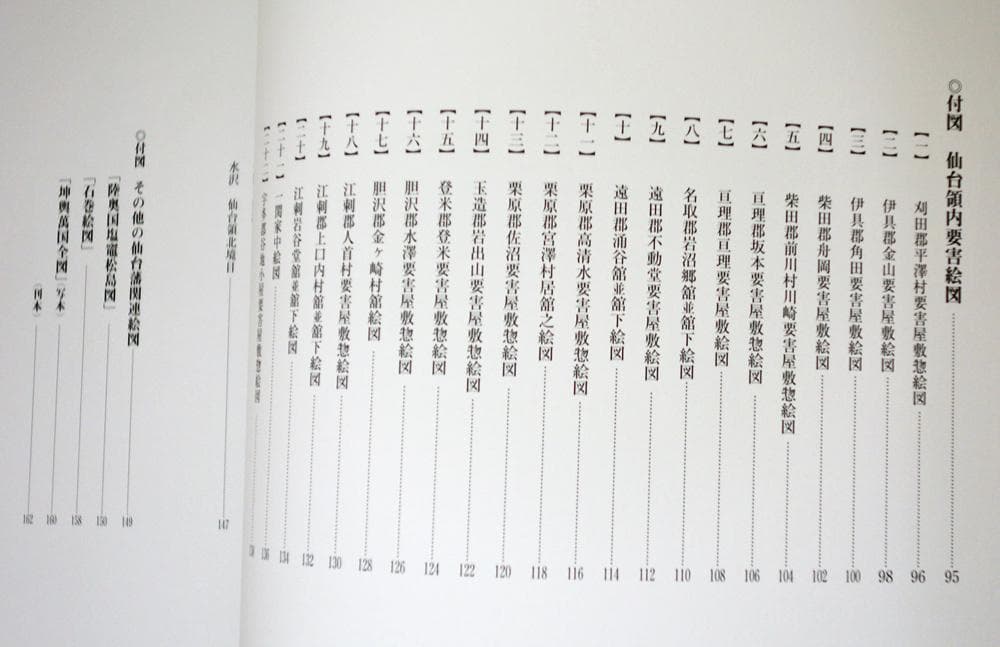 ◎付図　仙台領内要害絵図 95
【一】　刈田郡平澤村要害屋敷惣絵図 96
【二】　伊具郡金山要害屋敷絵図 98
【三】　伊具郡角田要害屋敷絵図 100
【四】　柴田郡舟岡要害屋敷絵図 102
【五】　柴田郡前川村川崎要害屋敷惣絵図 104
【六】　亘理郡坂本要害屋敷惣絵図 106
【七】　亘理郡亘理要害屋敷絵図 108
【八】　名取郡岩沼郷舘並舘下絵図 110
【九】　遠田郡不動堂要害屋敷絵図 112
【十】　遠田郡涌谷舘並舘下絵図 114
【十一】　栗原郡高清水要害屋敷惣絵図 116
【十二】　栗原郡宮澤村居舘之絵図 118
【十三】　栗原郡佐沼要害屋敷惣絵図 120
【十四】　玉造郡岩出山要害屋敷惣絵図 122
【十五】　登米郡登米要害屋敷惣絵図 124
【十六】　胆沢郡水澤要害屋敷惣絵図 126
【十七】　胆沢郡金ヶ崎村舘絵図 128
【十八】　江刺郡人首村要害屋敷惣絵図 130
【十九】　江刺郡上口内村舘並舘下絵図 132
【二十】　江刺岩谷堂舘並舘下絵図 134
【二十一】　一関家中絵図 136
【二十二】　宇多郡谷地小屋要害屋敷惣絵図 138
水沢　仙台領北境目 147
◎付図　その他の仙台藩関連絵図 149
「陸奥国塩竈松島図」 150
「石巻絵図」 158
「坤輿萬国全図」（写本） 160
（刊本） 162